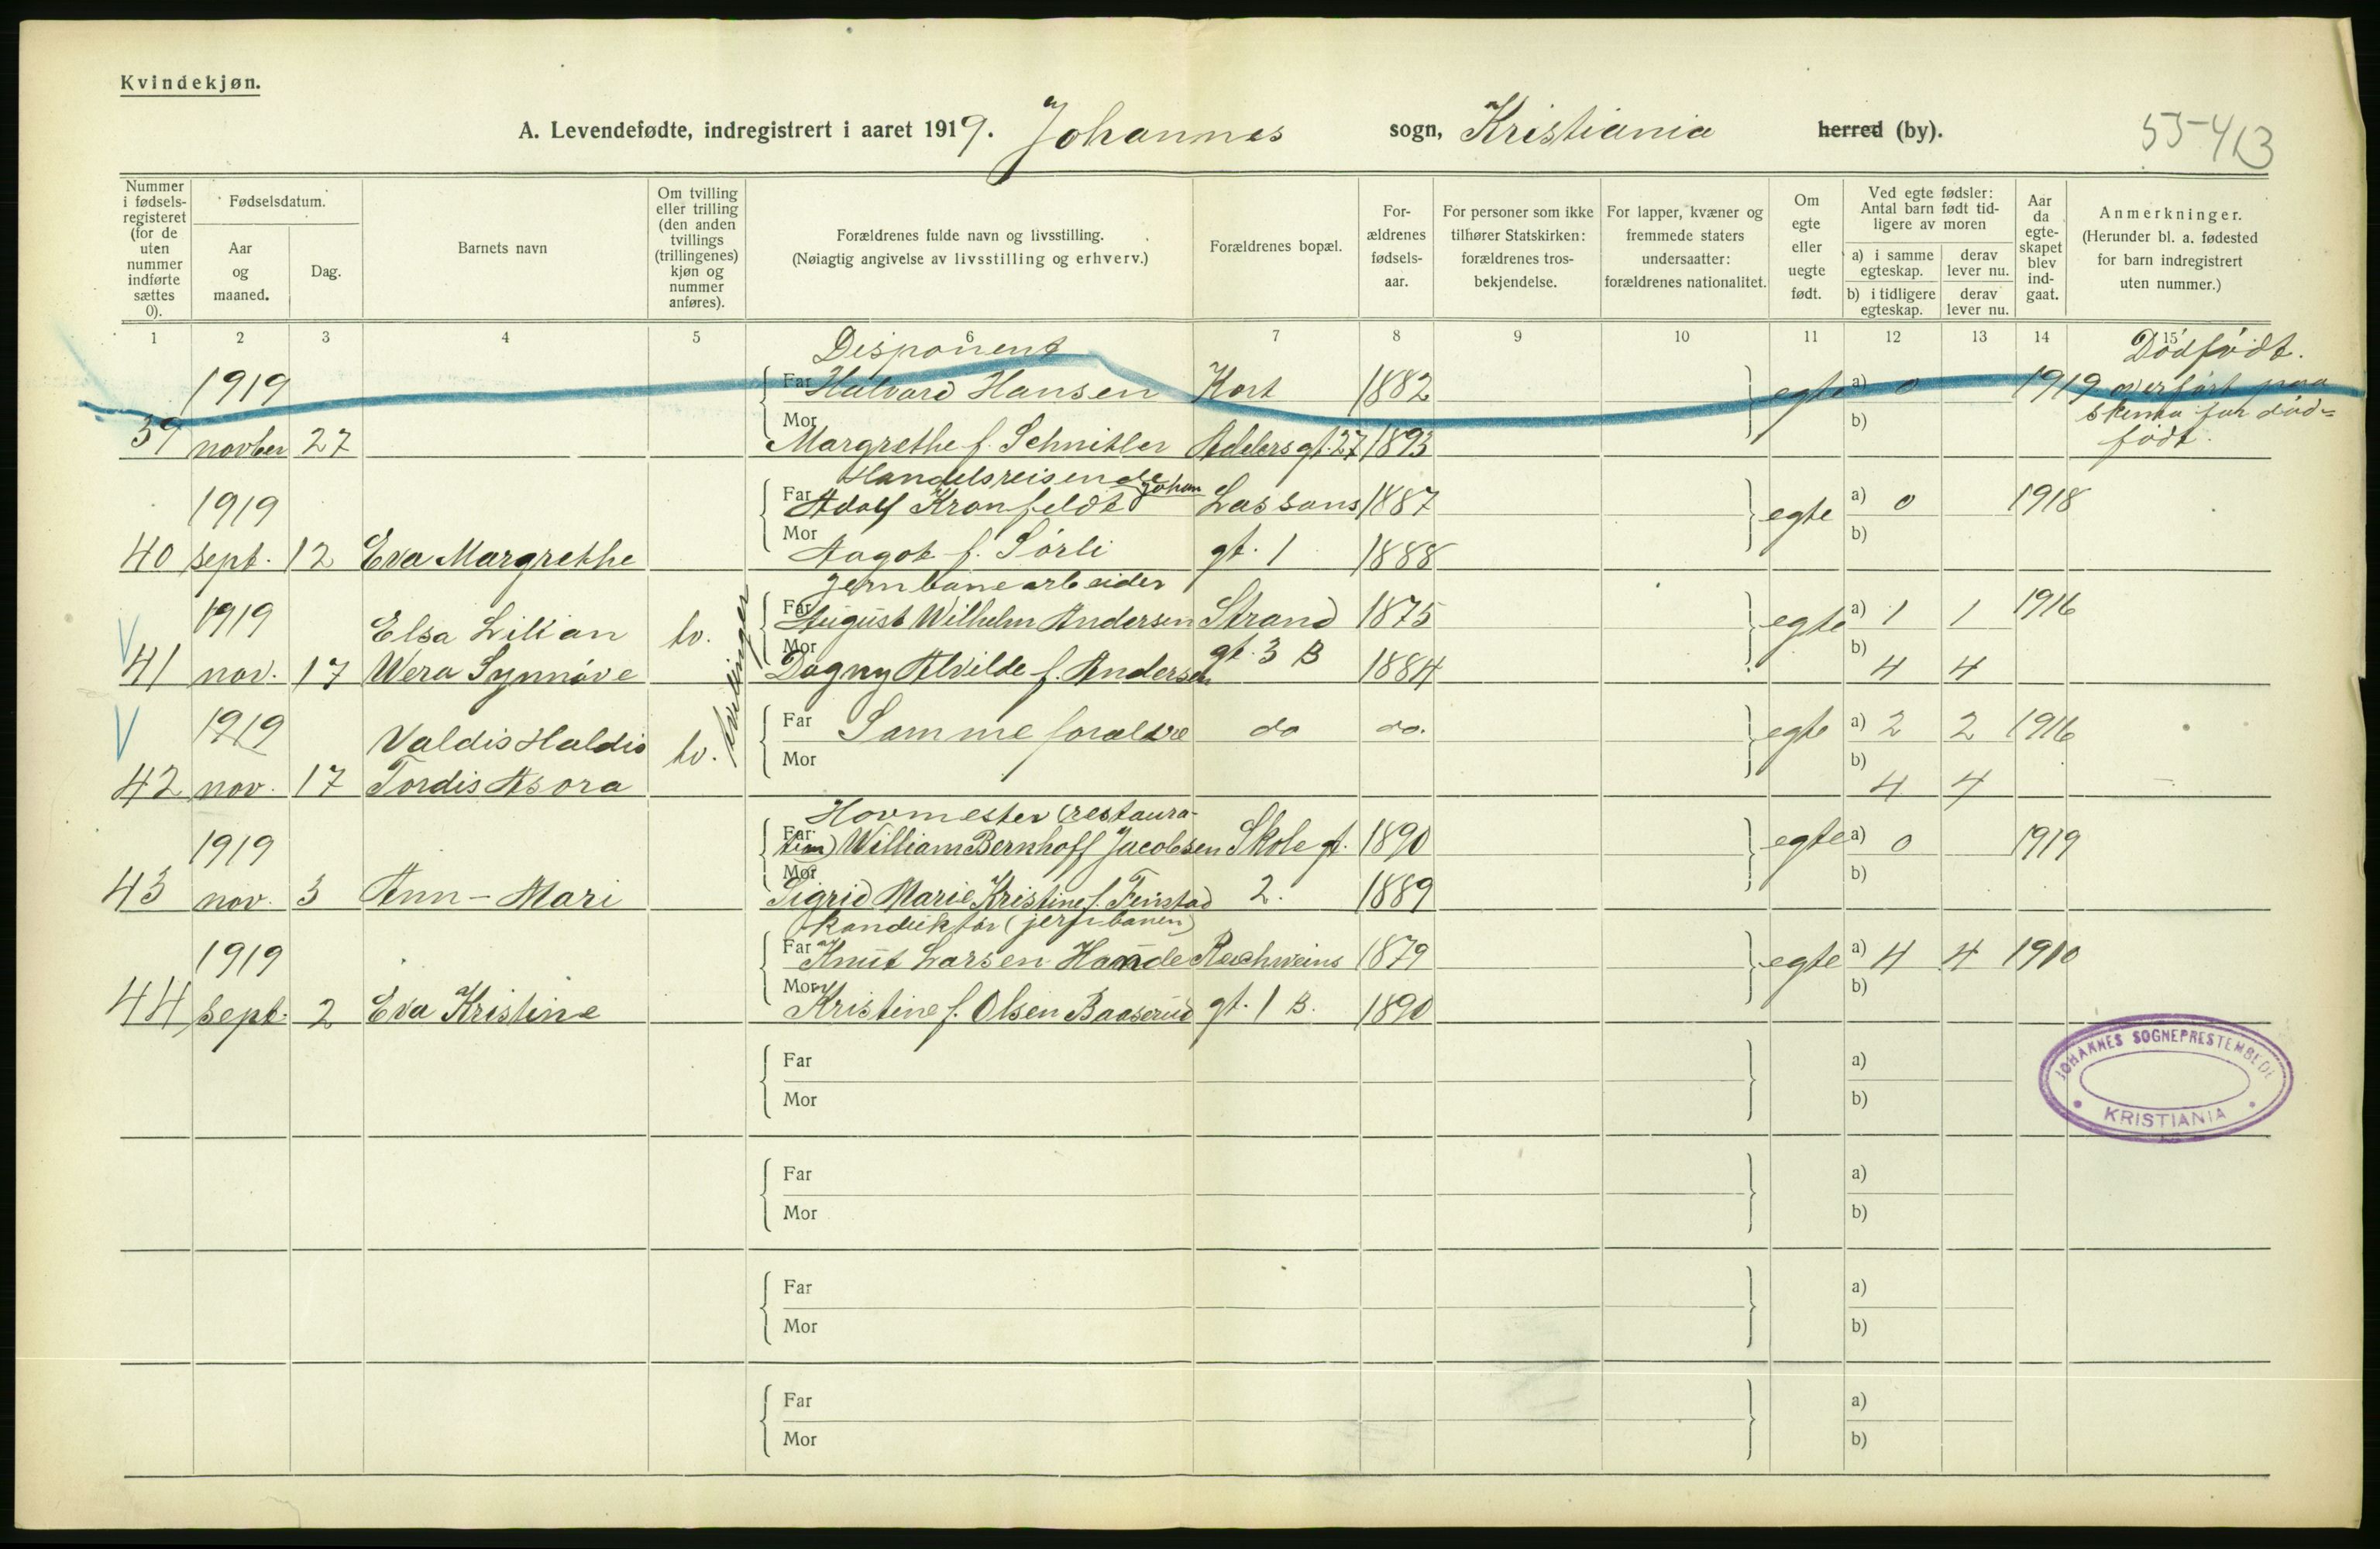 Kvindekjøn.
A. Levendefødte, indregistrert i aaret 1919. Johannes sogn, Kristiania herred (by).
55-413
Nummer i fødsels-registeret (for de uten nummer indførte sættes 0).
Fødselsdatum.
Aar og maaned.
Dag.
Barnets navn
Om tvilling eller trilling (den anden tvillings (trillingenes) kjøn og nummer anføres).
Forældrenes fulde navn og livsstilling.
(Nøiagtig angivelse av livsstilling og erhverv.)
Forældrenes bopæl.
For-ældrenes fødsels-aar.
For personer som ikke tilhører Statskirken: forældrenes tros-bekjendelse.
For lapper, kvæner og fremmede staters undersaatter: forældrenes nationalitet.
Om egte eller uegte født.
Ved egte fødsler: Antal barn født tid-ligere av moren
a) i samme egteskap.
derav lever nu.
b) i tidligere egteskap.
derav lever nu.
Aar da egte-skapet blev ind-gaat.
Anmerkninger.
(Herunder bl. a. fødested for barn indregistrert uten nummer.)
1 2 3 4 5 6 7 8 9 10 11 12 13 14 15
Disponent Dødfødt.
1919 Far Halvard Hansen Kort 1882 egte a) 0 1919 overført paa
skema for død=
39 novber 27 Mor Margrethe f. Schnitler Adelers gt. 27 1893 b) født.
Handelsreisende
1919 Far Adolf Kronfeldt Johan Lassons 1887 egte a) 0 1918
40 sept. 12 Eva Margrethe Mor Aagot f. Sørli gt. 1 1888 b)
Jernbanearbeider
1919 Elsa Lilian tv. Far August Wilhelm Andersen Strand 1875 egte a) 1 1 1916
V 41 nov. 17 Wera Synnøve Mor Dagny Alvilde f. Andersen gt. 3 B 1884 b) 4 4
tvillinger
V 1919 Valdis Haldis tv. Far Samme forældre do do. egte a) 2 2 1916
42 nov. 17 Tordis Asora Mor b) 4 4
Hovmester (restaura-
1919 Far tion) William Bernhoff Jacobsen Skole gt. 1890 egte a) 0 1919
43 nov. 3 Ann-Mari Mor Sigrid Marie Kristine f. Finstad 2. 1889 b)
Konduktør (jernbanen)
1919 Far Knut Larsen Haande Rachweins 1879 egte a) 4 4 1910
44 sept. 2 Eva Kristine Mor Kristine f. Olsen Baaserud gt. 1 B. 1890 b)
JOHANNES SOGNEPRESTEMBEDE
KRISTIANIA
Far a)
Mor b)
Far a)
Mor b)
Far a)
Mor b)
Far a)
Mor b)